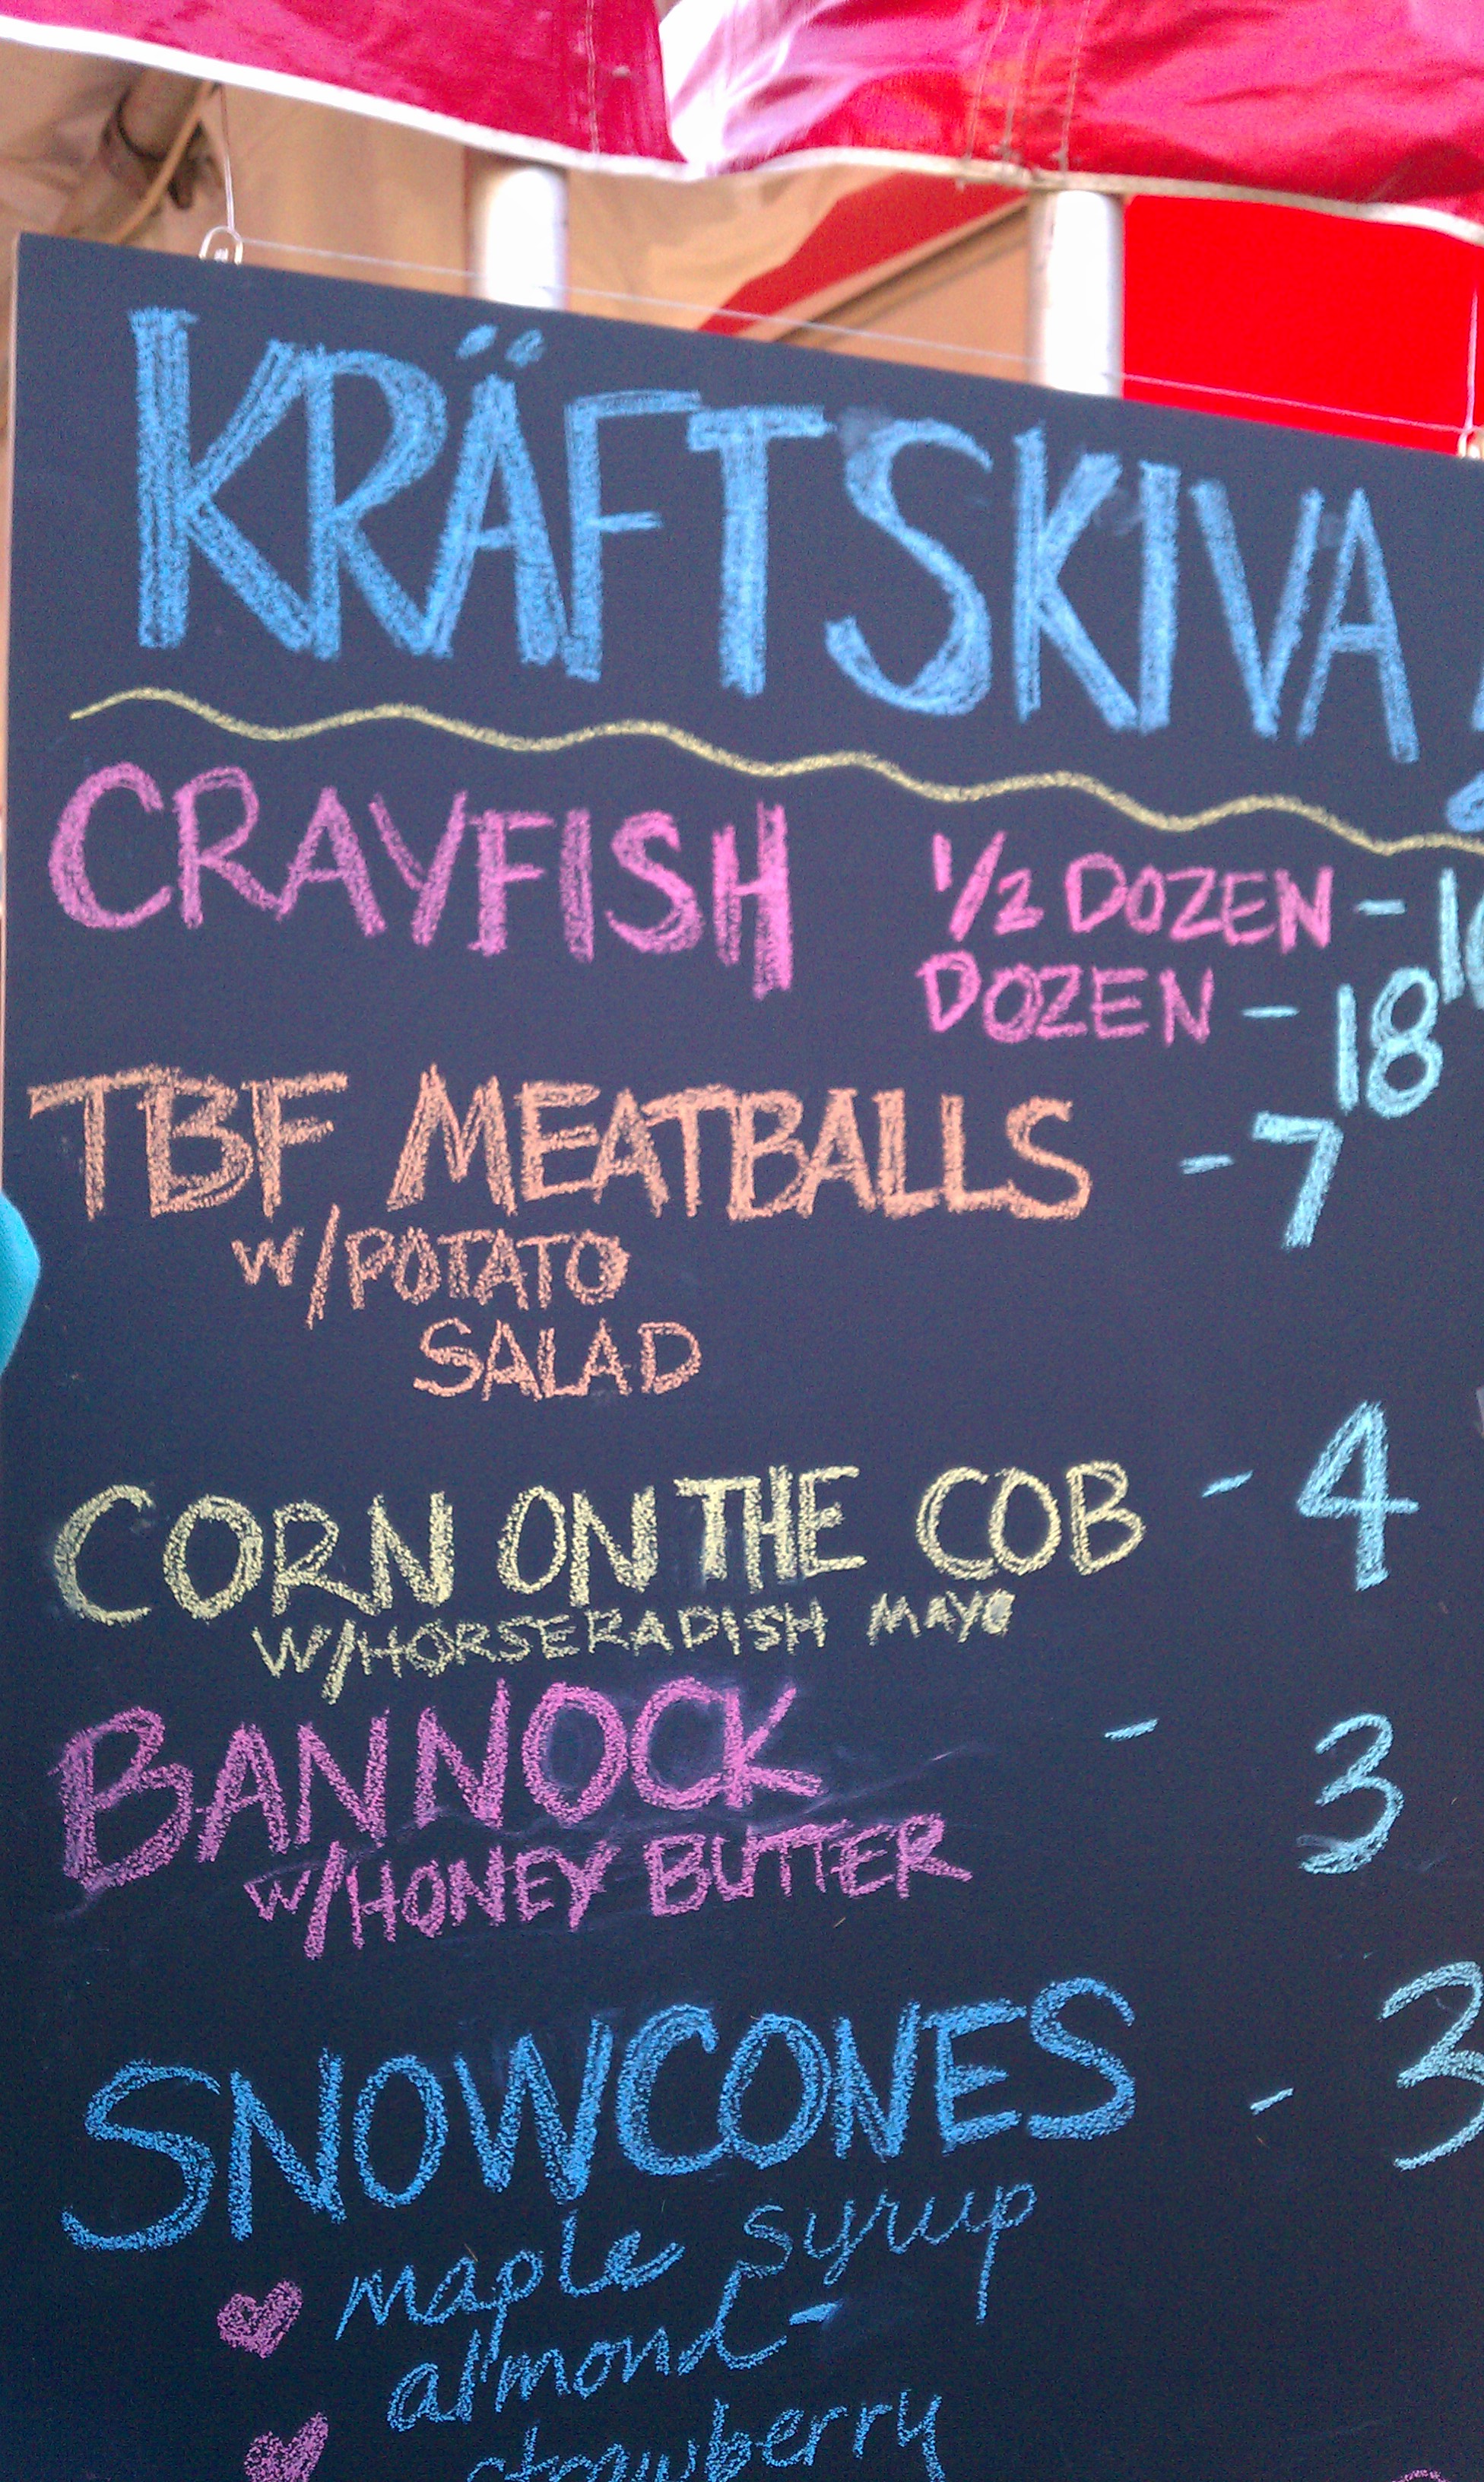 KRÄFTSKIVA
CRAYFISH 1/2 DOZEN -
DOZEN - 18
TBF MEATBALLS - 7
W/POTATO
SALAD
CORN ON THE COB - 4
W/HORSERADISH MAYO
BANNOCK - 3
W/HONEY BUTTER
SNOWCONES - 3
maple syrup
almond-
strawberry